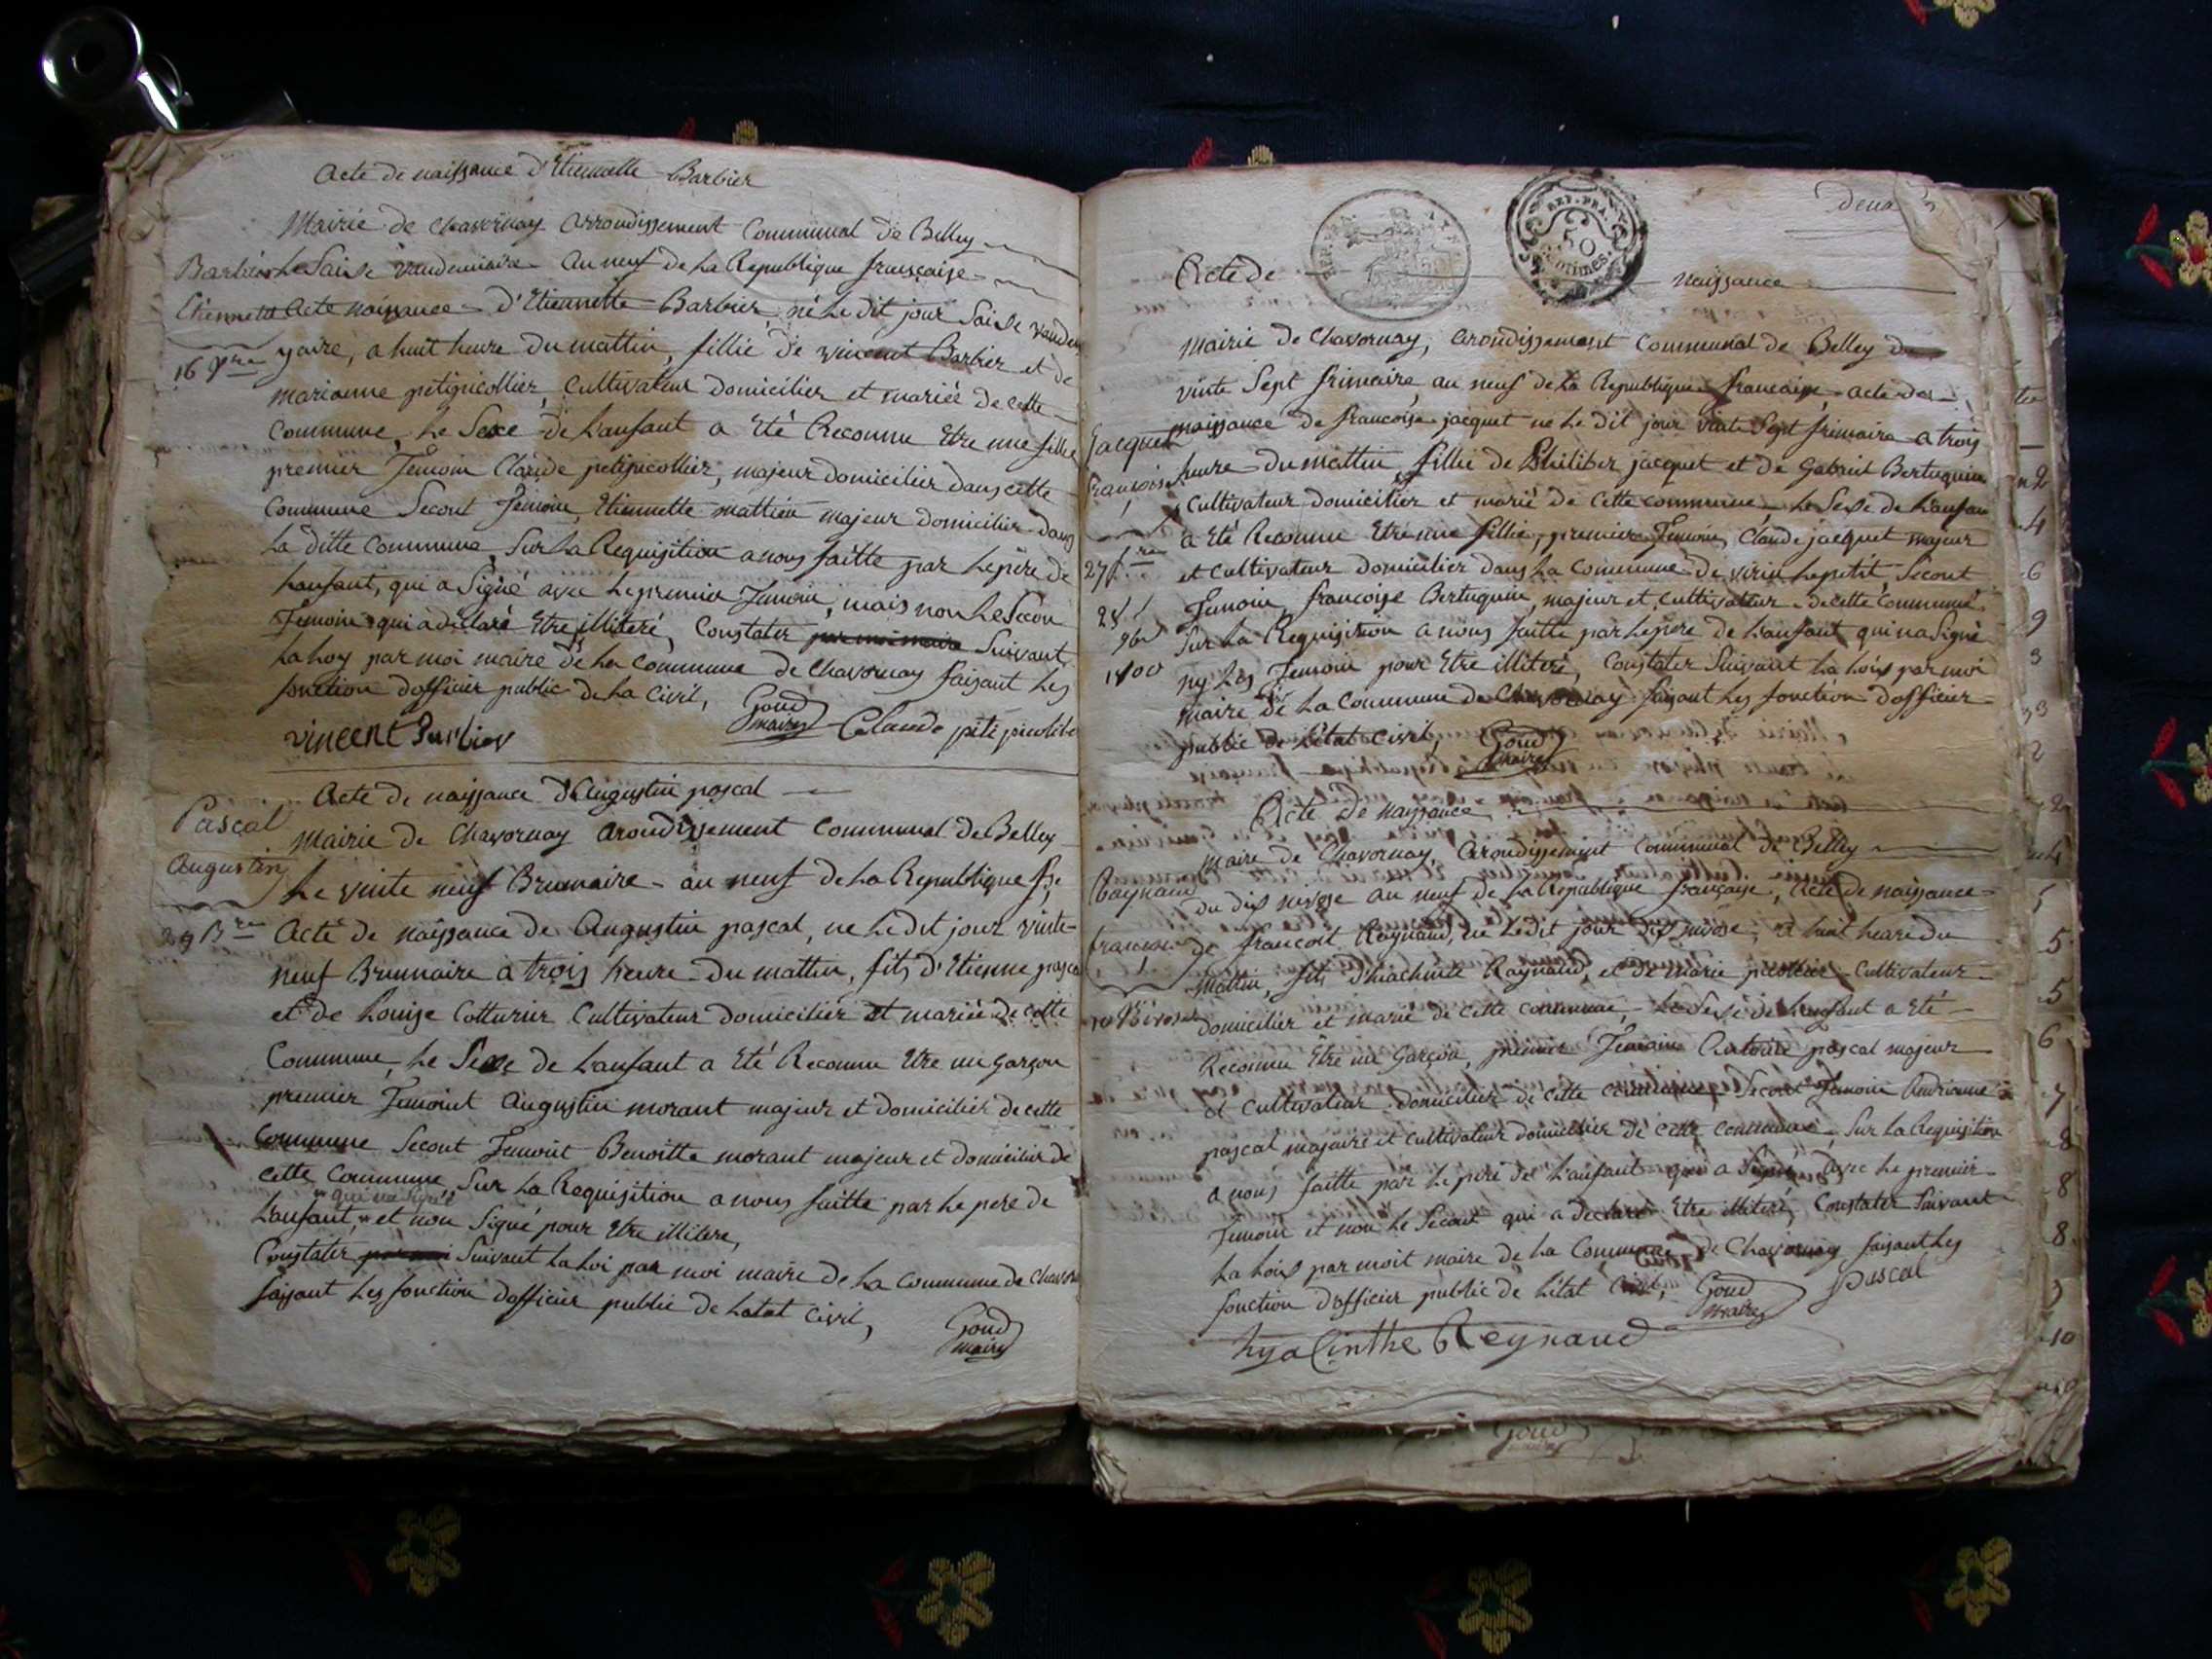 Acte de naissance d'Etiennette Barbier
Mairie de chavornay arrondissement Communal de Belley
Barbier
Etiennette
16 Vre
Le Saise vandemiaire an neuf de La Republique française
Acte naissance d'Etiennette Barbier, né Le dit jour Saise vandem
yaire, a huit heure du mattin, fillie de vincent Barbier et de
marianne petipicollier, Cultivateur domicilier et mariée de cette
Commune, Le Sexe de Lanfant a Eté Reconnu Etre une fillie
premier Temoin Claude petipicollier, majeur domicilier dans cette
Commune Secont Temoin, Etiennette mattieu majeur domicilier dans
La ditte Commune, Sur La Requisition a nous faitte par Le père de
Lanfant, qui a Signé avec Le premier Temoin, mais non Le Secon
Temoin qui a déclaré Etre illiteré, Constater par moi maire Suivant
La Loy par moi maire de La Commune de Chavornay faisant Les
fonction d'officier public de La Civil,
Goud
maire
vincent Barbier
Claude peti picolite
Acte de naissance d'Augustin pascal
Pascal
Augustin
29 Bre
Mairie de Chavornay arondissement Communal de Belley
Le vinte neuf Brumaire an neuf de La Republique fse
Acte de naissance de Augustin pascal, ne Le dit jour vinte
neuf Brumaire a trois heure du mattin, fits d'Etienne pascal
et de Louise Cotturier Cultivateur domicilier et mariée de cette
Commune, Le Sexe de Lanfant a Eté Reconnu Etre un garçon
premier Temoint Augustin morant majeur et domicilier de cette
Commune Secont Temoint Benoitte morant majeur et domicilier de
cette Commune Sur La Requisition a nous faitte par Le pere de
Lanfant, et non Signé pour Etre illitere,
Constater par moi Suivant La Loi par moi maire de La Commune de Chavor
faisant Les fonction d'officier public de Letat Civil,
Goud
maire
deux
REP. FRA.
50
centimes
Acte de naissance
Jacquet
françoise
27 fre
Mairie de Chavornay, arondissement Communal de Belley du
vinte Sept frimaire, an neuf de La Republique francaise, acte de
naissance de francoise jacquet ne Le dit jour vinte Sept frimaire a trois
heure du mattin, fillie de Philiber jacquet et de Gabriel Bertuquin
Cultivateur domicilier et marié de Cette commune, Le Sexe de Lanfan
a Eté Reconnu Etre une fillie, premier Temoin, Claude jacquet majeur
et Cultivateur domicilier dans La Commune de virin Le petit, Secont
Temoin, francoise Bertuquin, majeur et Cultivateur de cette commune
Sur La Requisition a nous faitte par Le pere de Lanfant qui na Signé
ny Les Temoin pour Etre illiteré, Constater Suivant La Loix par moi
maire de La Commune de Chavornay faisant Les fonction d'officier
public de Letat Civil,
Goud
maire
Acte de naissance
Raynaud
françois
maire de Chavornay, arondissement Communal de Belley
du dix nivose an neuf de La Republique française, Acte de naissance
de francoit Raynaud, ne Ledit jour dix nivose, a huit heure du
mattin, fits d'hiachinte Raynaud, et de marie picollier Cultivateur
domicilier et marié de cette commune, Le Sexe de Lanfant a Eté
Reconnu Etre un garçon, premier Temoin Antoine pascal majeur
et Cultivateur domicilier de cette commune Secont Temoin Andrienne
pascal majeure et cultivateur domicilier de cette commune, Sur La Requisition
a nous faitte par Le pere de Lanfant qui a Signé avec Le premier
Temoin et non Le Secont qui a declaré Etre illiteré, Constater Suivant
La Loix par moit maire de La Commune de Chavornay faisant Les
fonction d'officier public de Letat Civil,
Goud
maire
Pascal
hyacinthe Reynaud
Goud